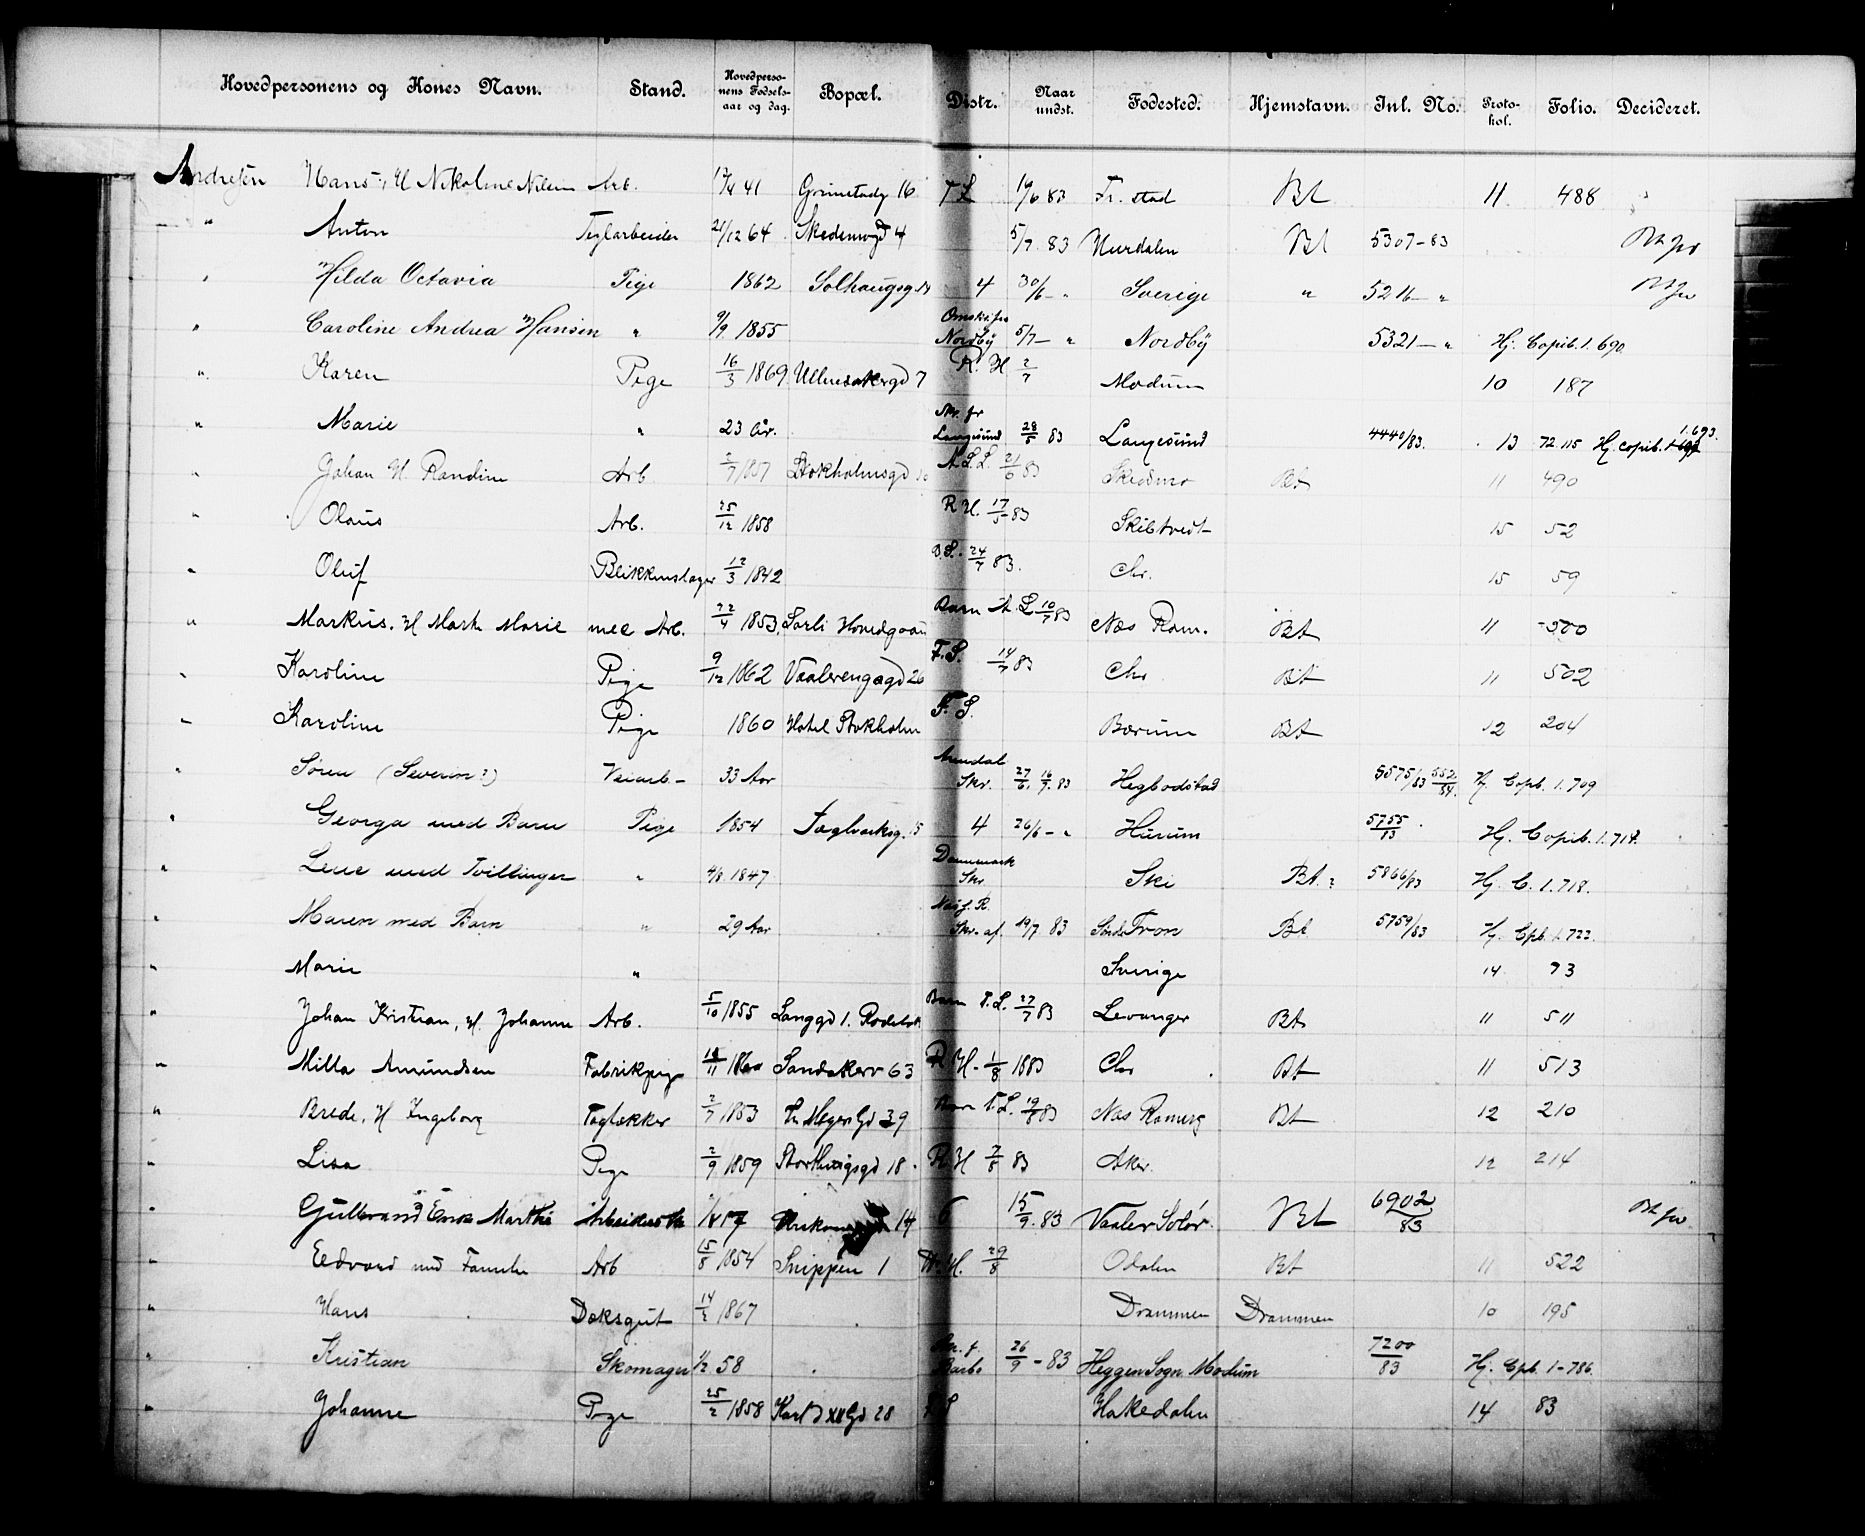 Hovedpersonens og Kones Navn. Stand. Hovedpersonens Fødselsaar og dag. Bopæl. Distr. Naar undst. Fødested. Hjemstavn. Inl. No. Protokol. Folio. Decideret.
Andresen Hans, H Nikoline Nilsen Arb. 41 Grimstadg 16 T L 83 Fr. stad Bt 11 488
" Anton Teglarbeider 21/12 64 4 5/7 83 Hurdalen Bt 5307-83
" Hilda Octavia Pige 1862 Solhaugsg 4 30/6 - " Sverige " 5216 - "
" Caroline Andrea Hansen " 9/9 1855 Nordby 5/7 - " Nordby 5321 - " Hj. Copib. 1. 690.
" Karen Pige 16/3 1869 Ullinsakergd 7 R. H 2/7 Modum 10 187
" Marie " 23 år. Skr. fr Langesund 28/5 83 Langesund 4440/83. 13 72.115 Hj. copib. 1.693.
" Johan H Randine Arb 2/7 1857 Stokholmsgd A L. L. 21/6 83 Skedsmo Bt 11 490
" Olaus Arb. 25/12 1858 R H. 17/5 83 Skibtvedt 15 52
" Oluf Blikkenslager 12/3 1842 24/7 83. Chr. 15 59
" Markus. H Mart. Marie Arb. 22/4 1853. Sorli Hovedgaard Barn A L 10/7 83 Næs Rom. Bt 11 500
" Karoline Pige 9/12 1862 Vaalerengagd 26 F. S. 14/7 83 Chr Bt 11 502
" Karoline Pige 1860 Hotel Stokholm F. S. Bærum Bt 12 204
" Søren (Severin?) Veiarb- 33 Aar Arendal Skr. 27/6. 16/7. 83 Hegbodstad 5575/83 552/84. Hj. Copb. 1. 709
" Georga med Barn Pige 1854 Teglverksg. 15 4 26/6 - " Hurum 5755/83 Hj. Copib. 1. 718.
" Lene med Tvillinger " 4/8. 1847 Danmark Skr Ski Bt. ? 5866/83 Hj. C. 1. 718.
" Maren med Barn " 29 Aar Næs f. R. Skr. af. 19/7 83 Søndre Fron Bt 5759/83 Hj. Cpb. 1. 722.
" Marie " Sverige 14 73
" Johan Kristian, H. Johanne Arb. 5/10 1855 Langgd 1. Rodeløk Barn T. L. 27/7 83 Levanger Bt 11 511
" Milla Amundsen Fabrikpige Sandakerv 63 R H. 1/8 1883 Chr Bt 11 513
" Brede, H Ingeborg Taglækker 2/7 1853 Th Meyers Gd 39 Barn T. L. 83 Næs Romerg Bt 12 210
" Lisa Pige 2/9 1859 Storthingsgd 18 R H 7/8 83 Aker 12 214
" Gulbrand Marthe 14 6 15/9. 83 Vaaler Solør. Bt 6902/83
" Edvard med Familie Arb 15/8 1854 Snippen 1 R. H. 29/8 Odalen Bt 11 522
" Hans Dæksgut 14/2 1867 Drammen Drammen 10 195
" Kristian Skomager 1/2 58 26/9 - 83 Heggen Sogn. Modum 7200/83 Hj. Cpb. 1 - 786.
" Johanne Pige 25/2 1858 Karl d XII Gd 28 Hakedalen 14 83